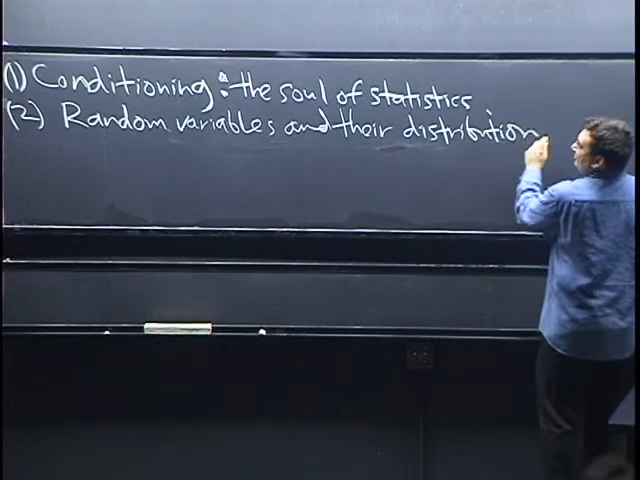 (1) Conditioning: the soul of statistics
(2) Random variables and their distribution